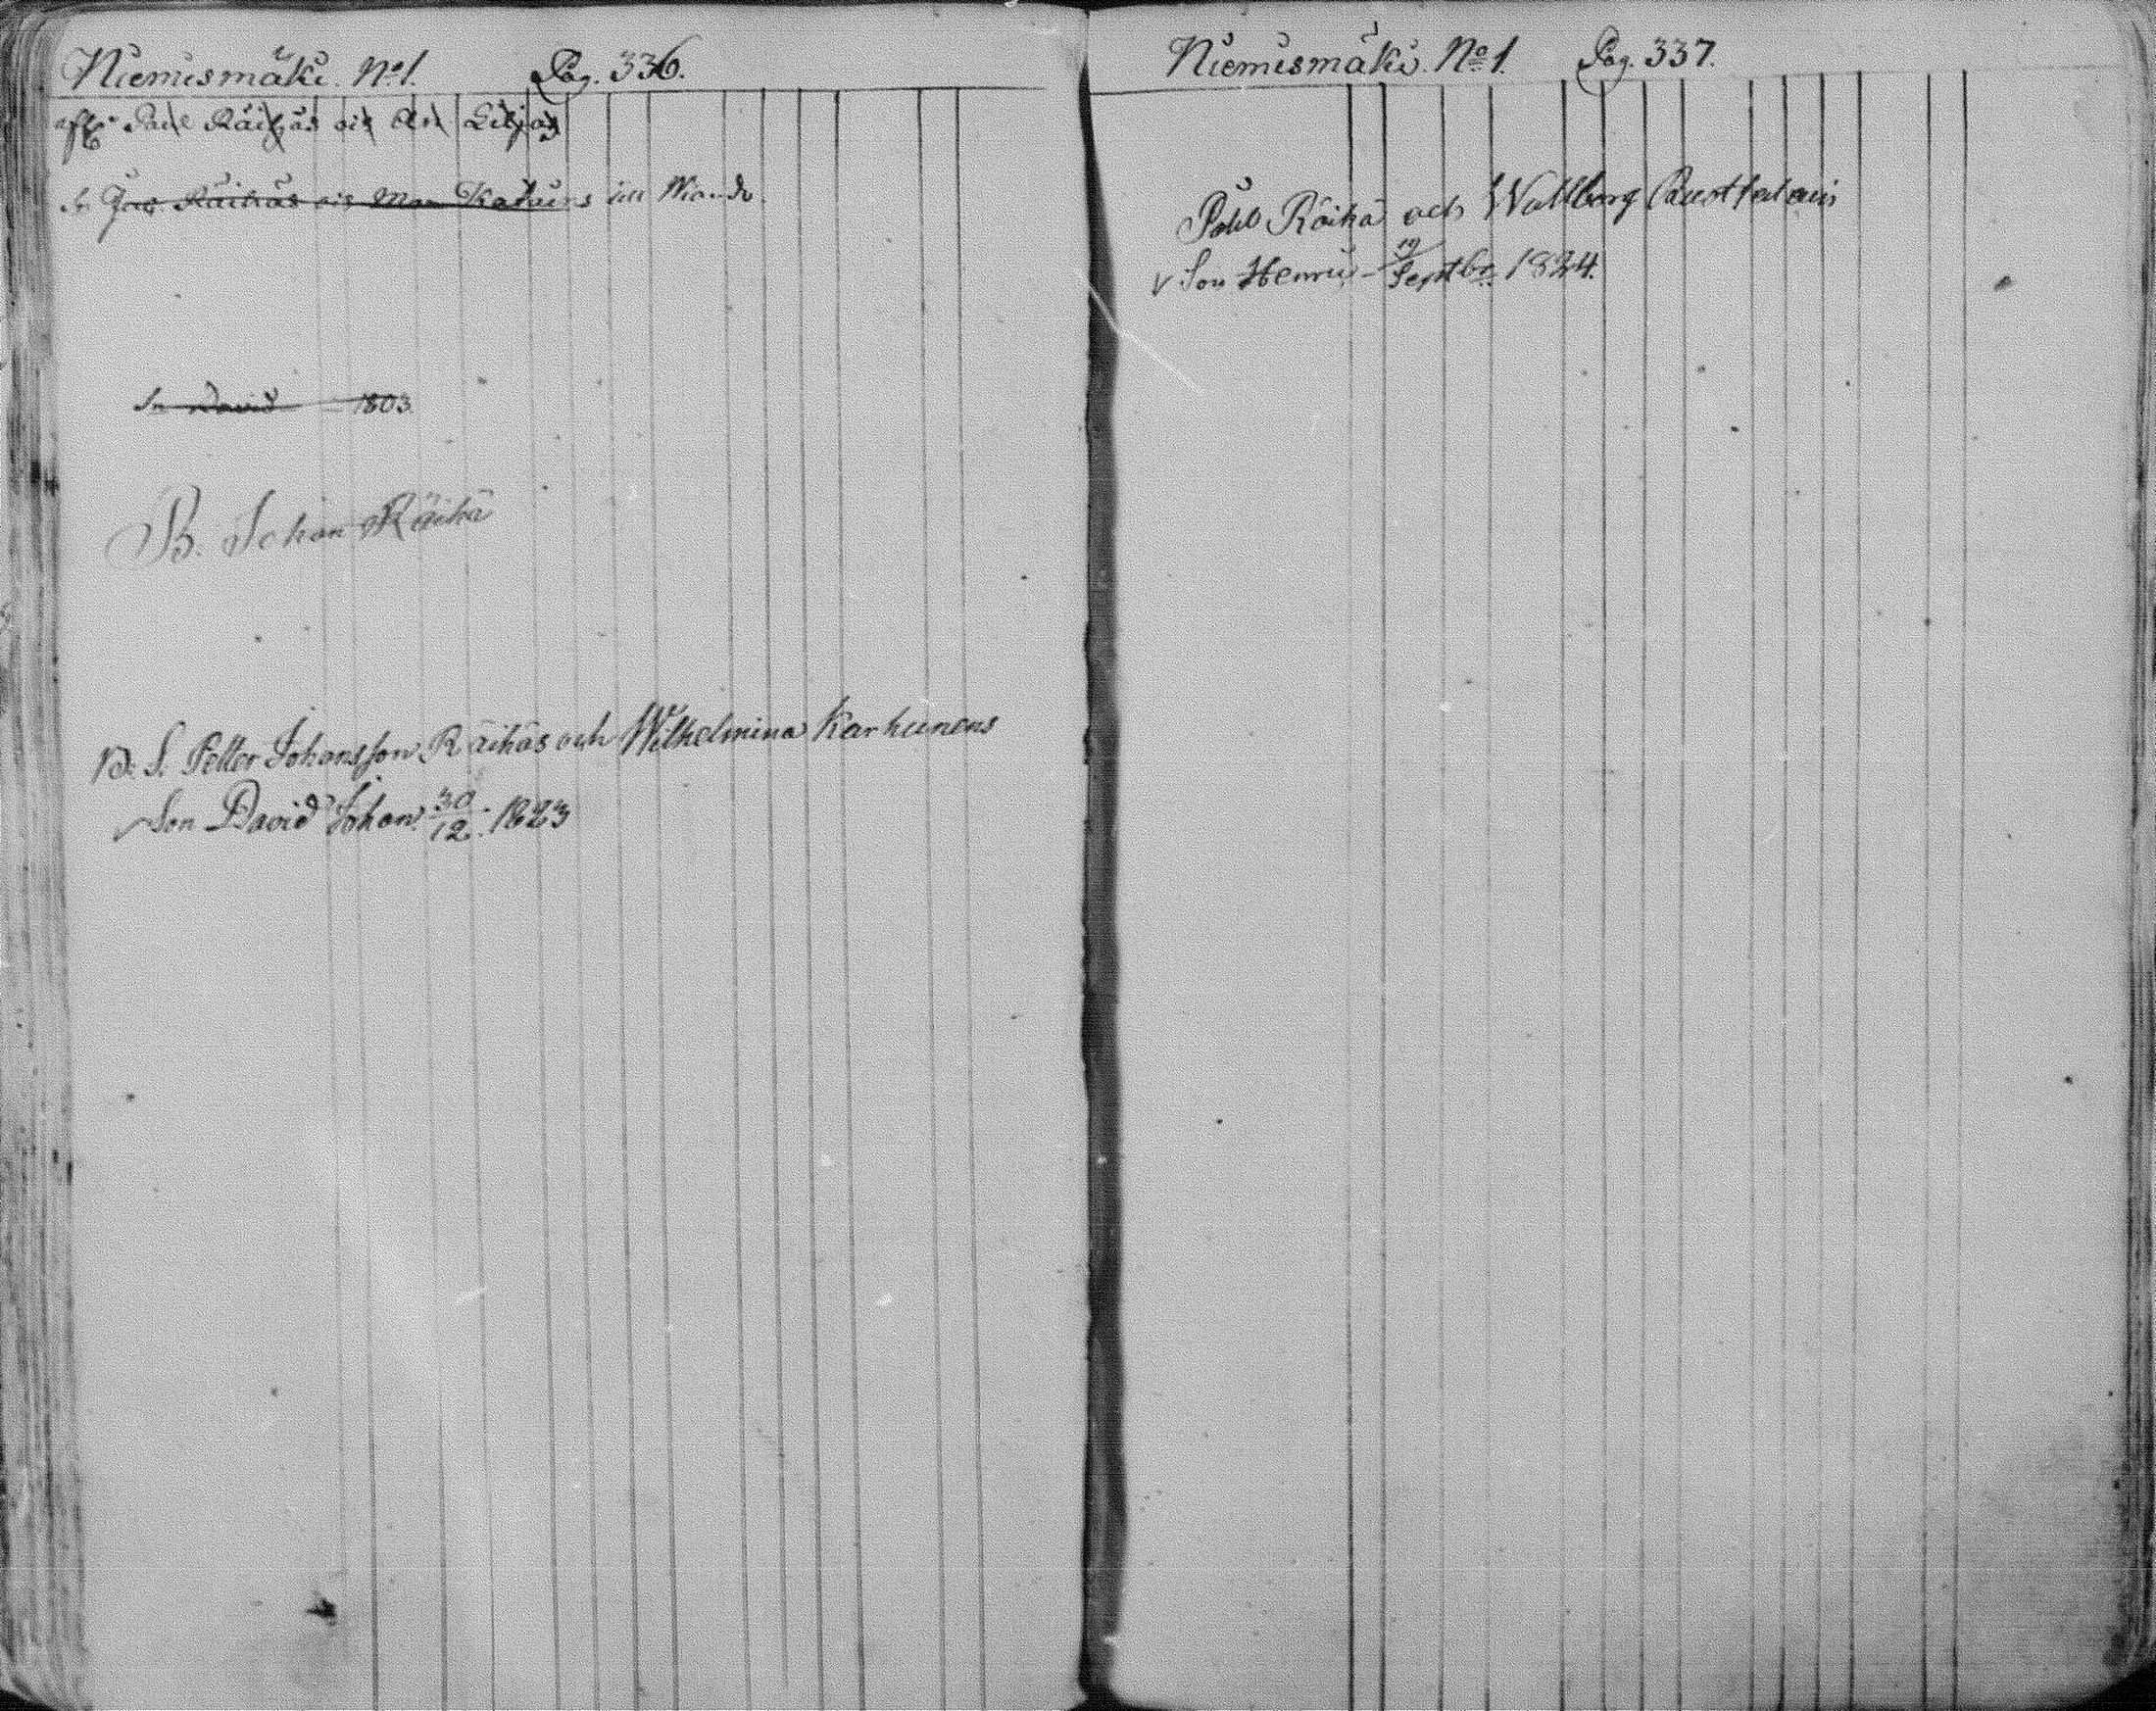 Niemismäki. No 1. Pag. 336.
Räihäs
Sn Räihäs Man till
Sn David 1803
B. Johan Räihä
B. S. Petter Johansson Räihäs och Wilhelmina Karhunens
Son David Johan 30/12. 1823
Niemismäki. No 1. Pag. 337.
Påhl Räihä och Wallborg
v Son Henric 19/Septbr. 1824.